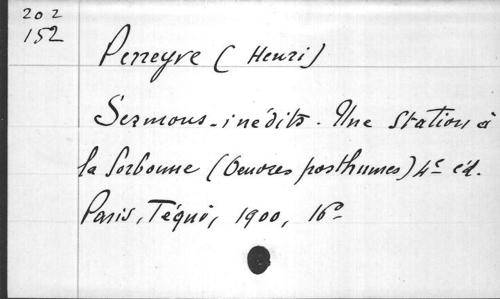 202
152
Perreyve (Henri)
Sermons-inédits. Une Station à
la Sorbonne (Oeuvres posthumes) 4e éd.
Paris, Téqui, 1900, 16o